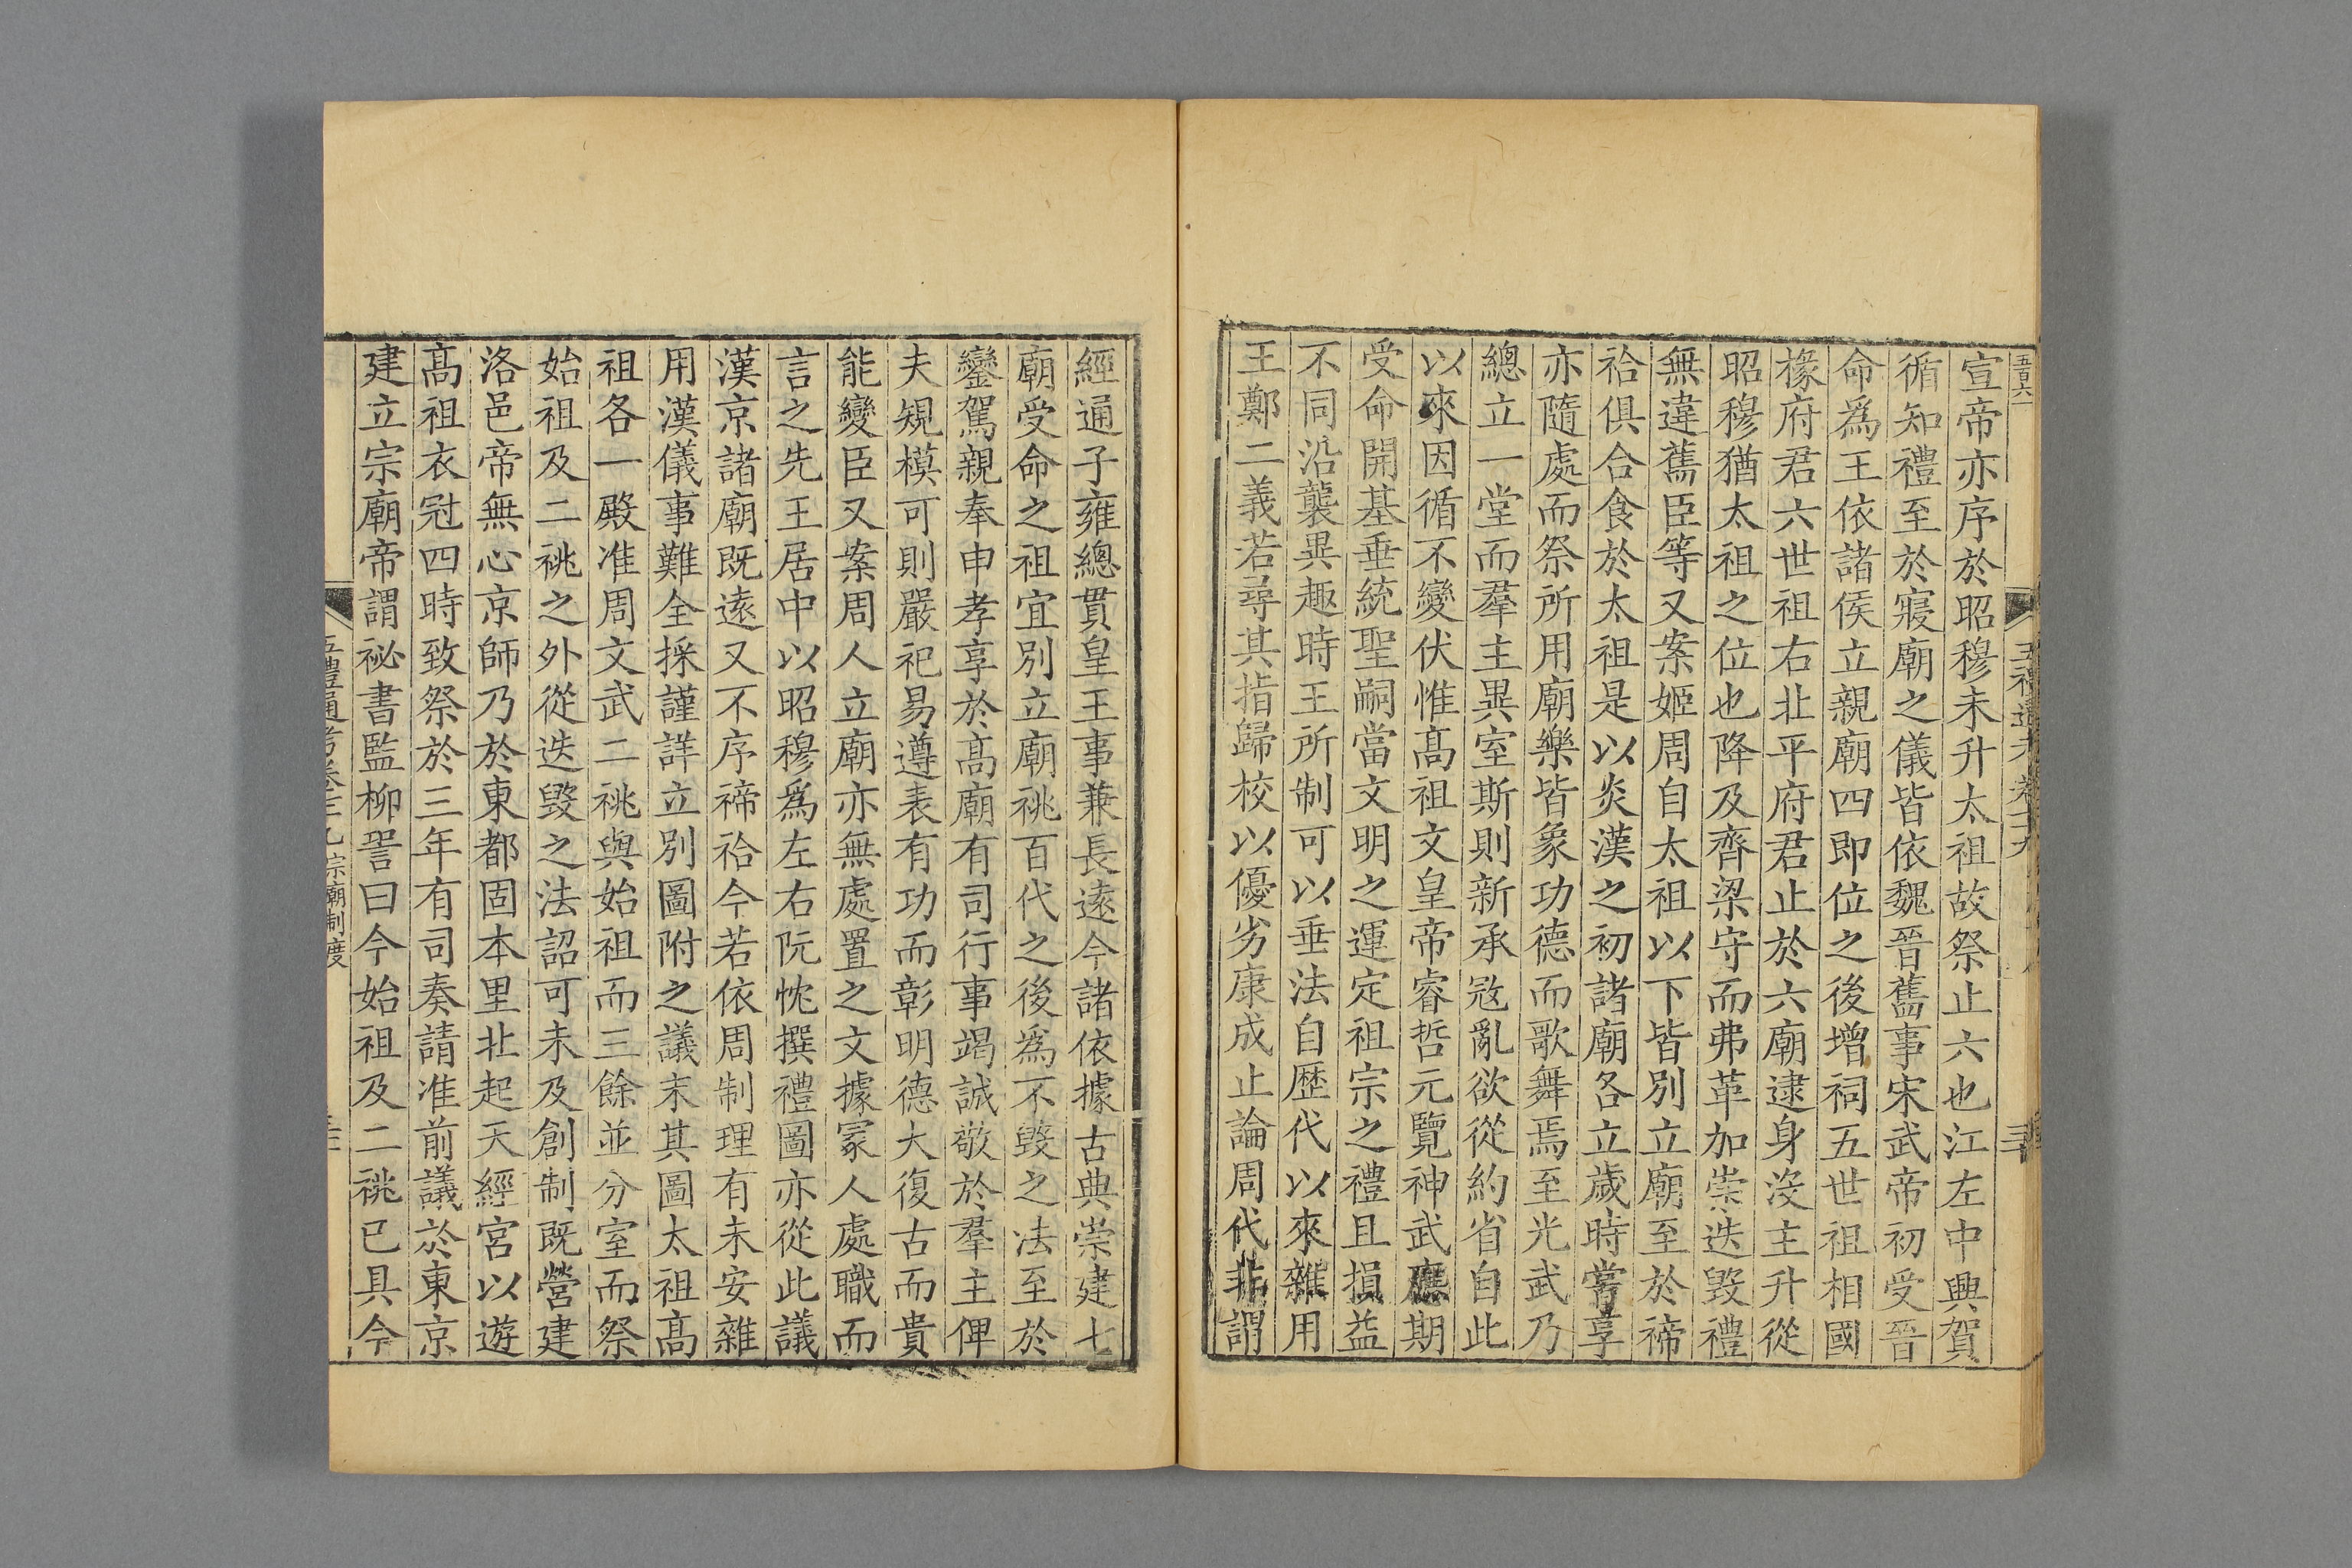 宣帝亦序於昭穆未升太祖故祭止六也江左中興賀
循知禮至於寢廟之儀皆依魏晉舊事宋武帝初受晉
命爲王依諸侯立親廟四即位之後增祠五世祖相國
掾府君六世祖右北平府君止於六廟逮身沒主升從
昭穆猶太祖之位也降及齊梁守而弗革加崇迭毀禮
無違舊臣等又案姬周自太祖以下皆別立廟至於禘
祫俱合食於太祖是以炎漢之初諸廟各立歲時嘗享
亦隨處而祭所用廟樂皆象功德而歌舞焉至光武乃
總立一堂而羣主異室斯則新承冦亂欲從約省自此
以來因循不變伏惟髙祖文皇帝睿哲元覽神武應期
受命開基垂統聖嗣當文明之運定祖宗之禮且損益
不同沿襲異趣時王所制可以垂法自歴代以來雜用
王鄭二義若尋其指歸校以優劣康成止論周代非謂
經通子雍總貫皇王事兼長逺今諸依據古典崇建七
廟受命之祖宜別立廟祧百代之後爲不毀之法至於
鑾駕親奉申孝享於髙廟有司行事竭誠敬於羣主俾
夫規模可則嚴祀易遵表有功而彰明德大復古而貴
能變臣又案周人立廟亦無處置之文據冡人處職而
言之先王居中以昭穆爲左右阮忱撰禮圖亦從此議
漢京諸廟既逺又不序禘祫今若依周制理有未安雜
用漢儀事難全採謹詳立別圖附之議末其圖太祖髙
祖各一殿准周文武二祧與始祖而三餘並分室而祭
始祖及二祧之外從迭毀之法詔可未及創制既營建
洛邑帝無心京師乃於東都固本里北起天經宮以遊
髙祖衣冠四時致祭於三年有司奏請准前議於東京
建立宗廟帝謂祕書監柳䛒曰今始祖及二祧已具今
五禮通考卷 宗廟制度